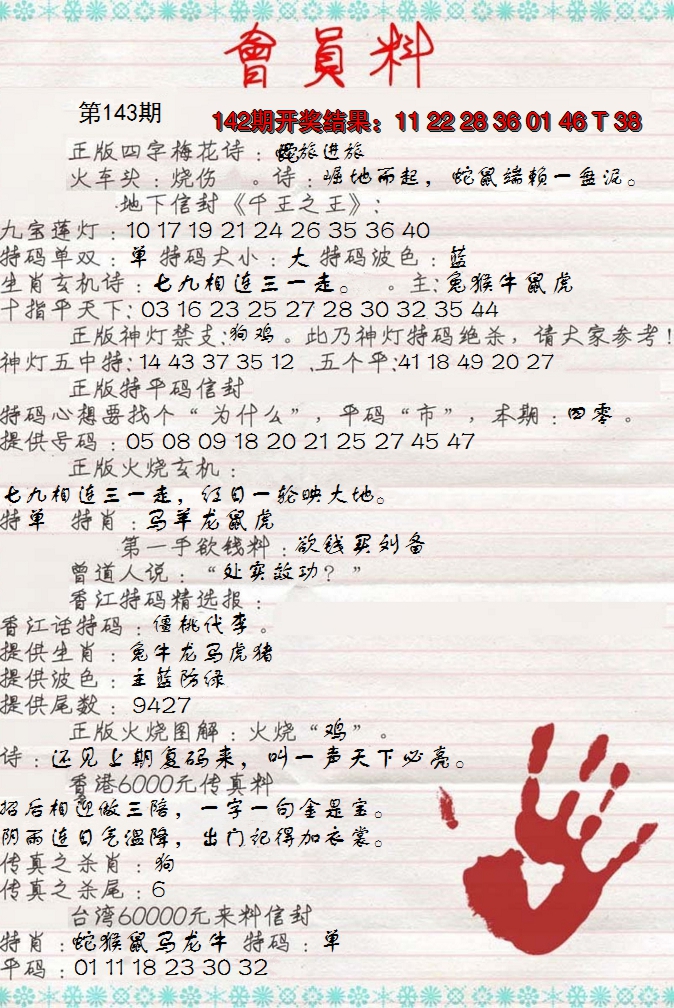 會員料
第143期
142期开奖结果：11 22 28 36 01 46 T 38
正版四字梅花诗：蛇旅进旅
火车头：烧伤 。诗：崛地而起，蛇鼠端赖一盘泥。
地下信封《千王之王》：
九宝莲灯：10 17 19 21 24 26 35 36 40
特码单双：单 特码大小：大 特码波色：蓝
生肖玄机诗：七九相连三一走。 。主：兔猴牛鼠虎
十指平天下：03 16 23 25 27 28 30 32 35 44
正版神灯禁支：狗鸡。此乃神灯特码绝杀，请大家参考！
神灯五中特：14 43 37 35 12 .五个平：41 18 49 20 27
正版特平码信封
特码心想要找个“为什么”，平码“市”，本期：四零。
提供号码：05 08 09 18 20 21 25 27 45 47
正版火烧玄机：
七九相连三一走，红日一轮映大地。
特单 特肖：马羊龙鼠虎
第一手欲钱料：欲钱买刘备
曾道人说：“处实效功？”
香江特码精选报：
香江话特码：僵桃代李。
提供生肖：兔牛龙马虎猪
提供波色：主蓝防绿
提供尾数：9427
正版火烧图解：火烧“鸡”。
诗：还见上期复码来，叫一声天下必亮。
香港6000元传真料
招后相迎做三陪，一字一句金是宝。
阴雨连日气温降，出门记得加衣裳。
传真之杀肖：狗
传真之杀尾：6
台湾60000元来料信封
特肖：蛇猴鼠马龙牛 特码：单
平码：01 11 18 23 30 32